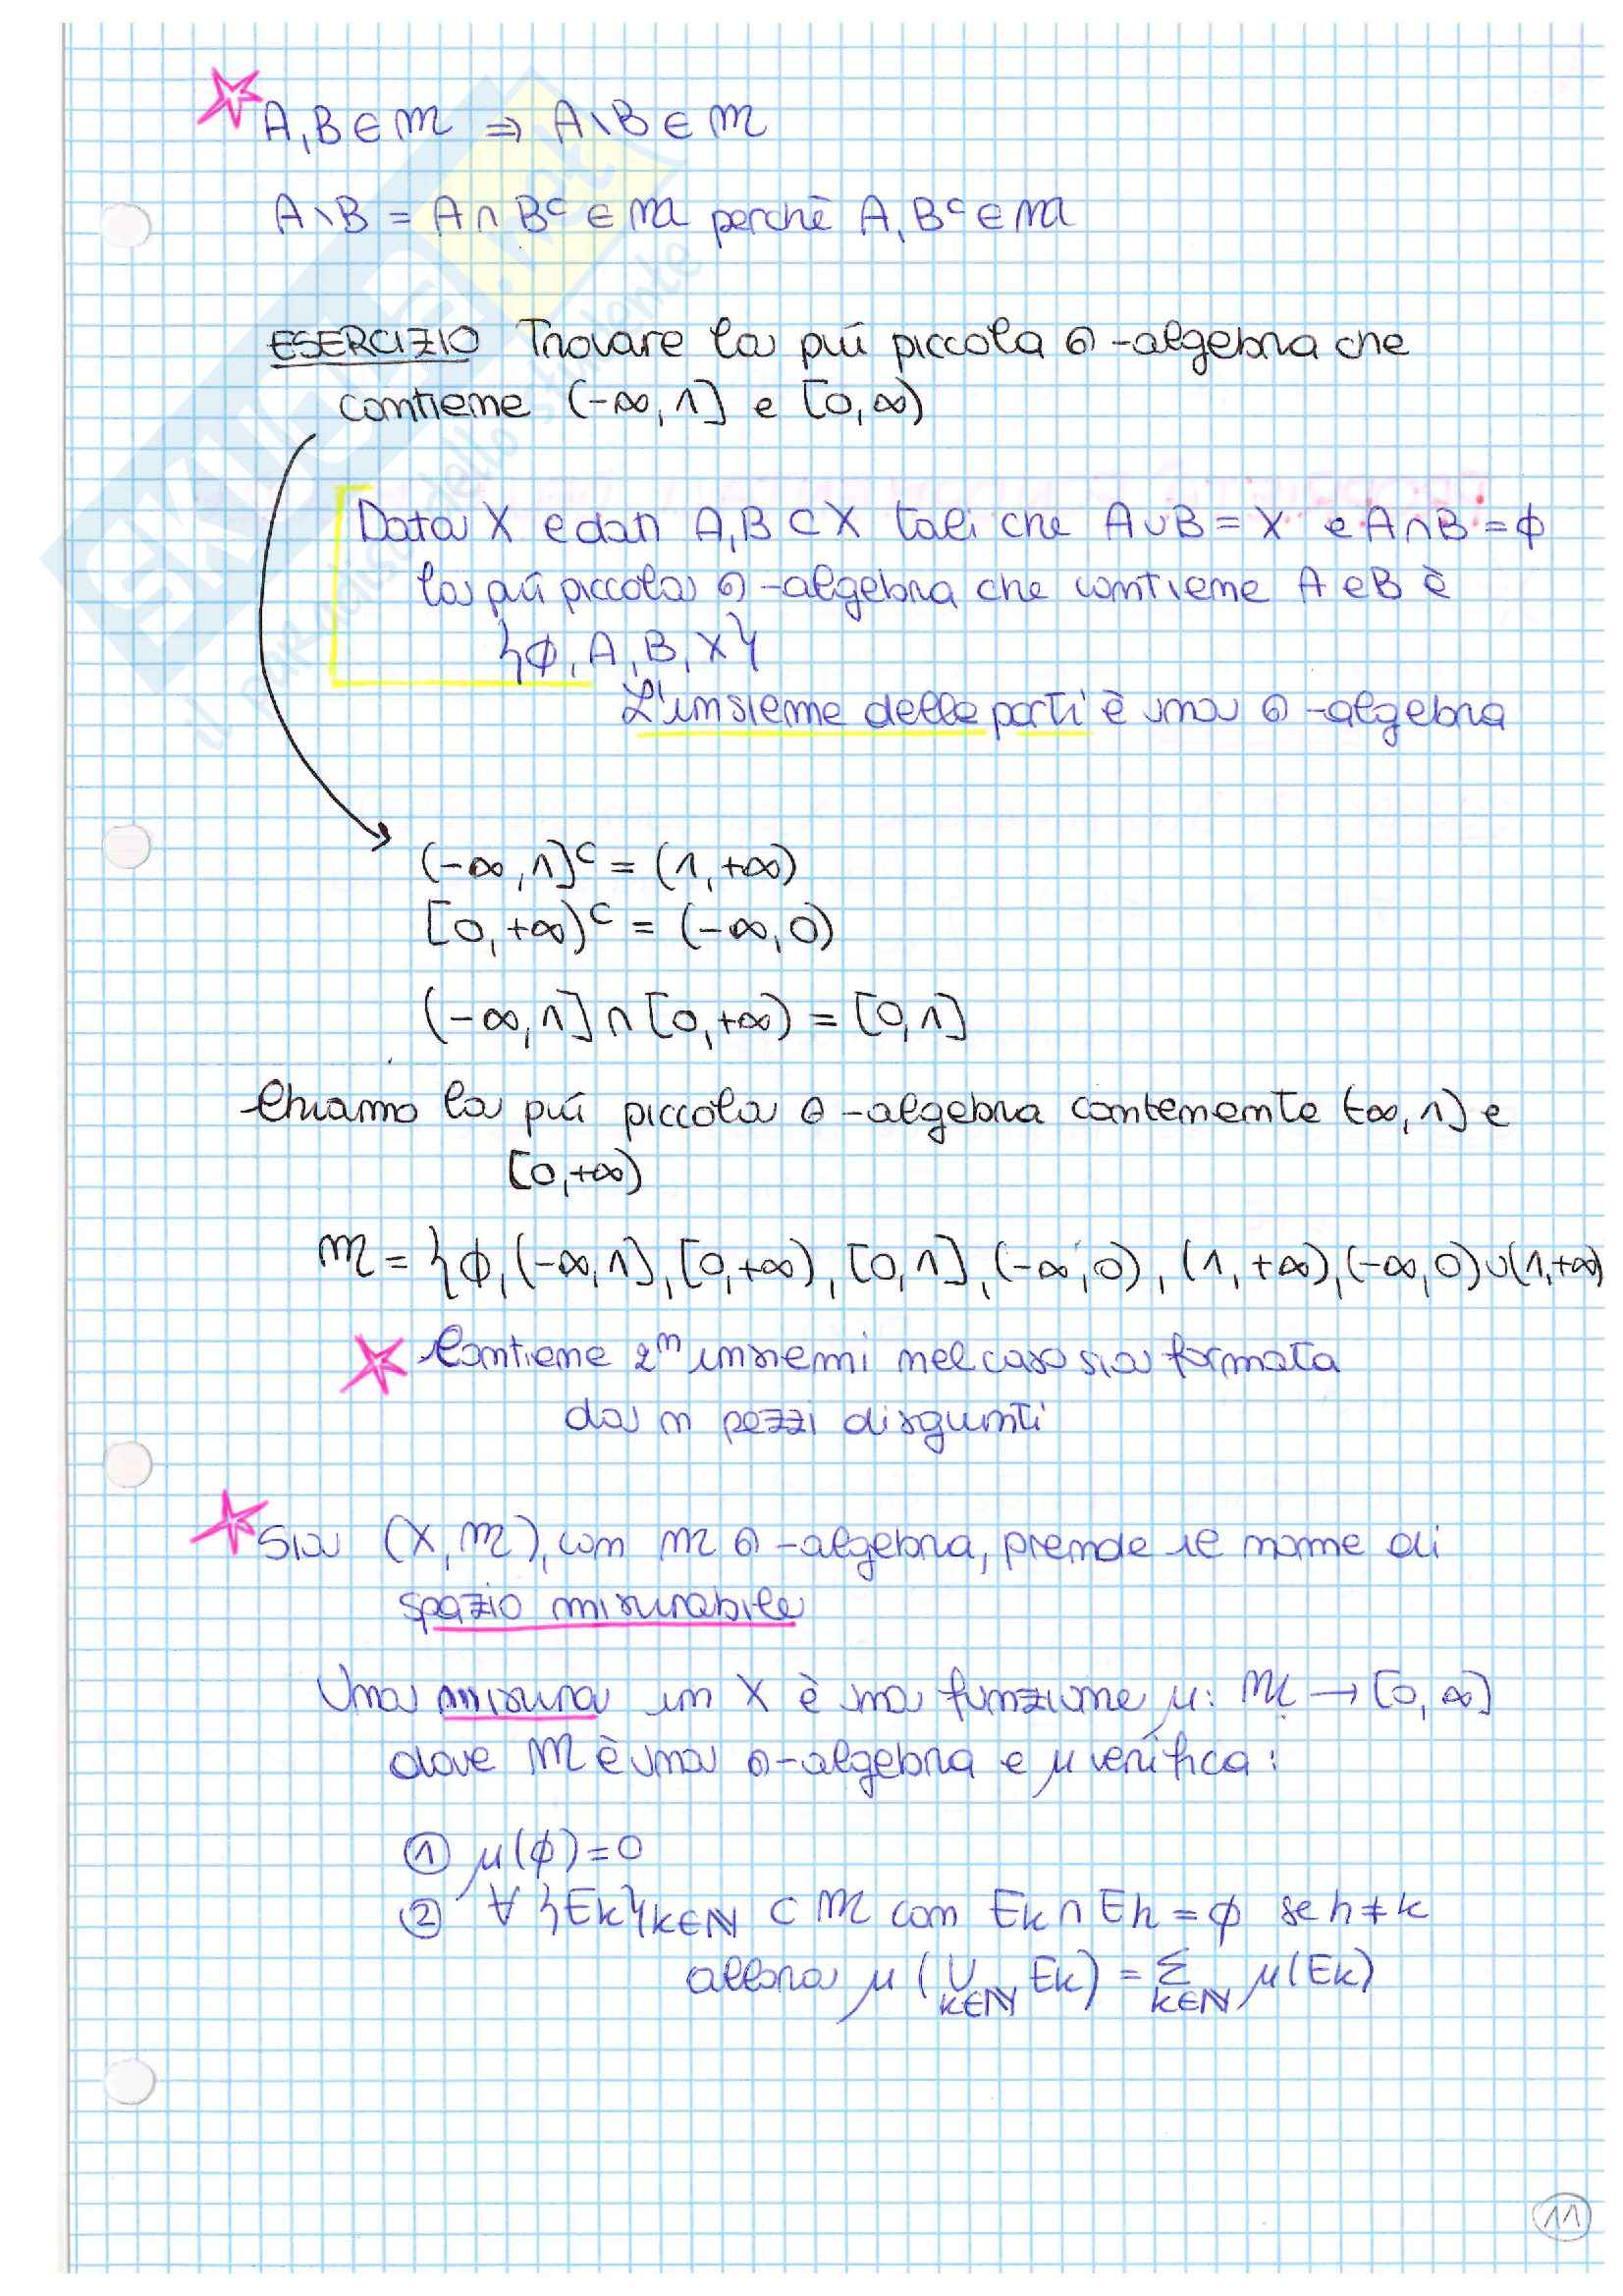 A, B ∈ m ⇒ A \ B ∈ m
A \ B = A ∩ Bᶜ ∈ m perchè A, Bᶜ ∈ m
ESERCIZIO Trovare la più piccola σ-algebra che
contiene (-∞, 1] e [0, ∞)
Data X e dati A, B ⊂ X tali che A ∪ B = X e A ∩ B = ϕ
la più piccola σ-algebra che contiene A e B è
{ϕ, A, B, X}
L'insieme delle parti è una σ-algebra
(-∞, 1]ᶜ = (1, +∞)
[0, +∞)ᶜ = (-∞, 0)
(-∞, 1] ∩ [0, +∞) = [0, 1]
Chiamo la più piccola σ-algebra contenente (-∞, 1] e
[0, +∞)
m = {ϕ, (-∞, 1], [0, +∞), [0, 1], (-∞, 0), (1, +∞), (-∞, 0) ∪ (1, +∞)
Contiene 2ⁿ insiemi nel caso sia formata
da n pezzi disgiunti
Sia (X, m), con m σ-algebra, prende il nome di
spazio misurabile
Una misura in X è una funzione μ: m → [0, ∞]
dove m è una σ-algebra e μ verifica:
① μ(ϕ) = 0
② ∀ {Ek}k∈ℕ ⊂ m con Ek ∩ Eh = ϕ se h ≠ k
allora μ(∪k∈ℕ Ek) = Σk∈ℕ μ(Ek)
11
SKUOLA.net
il paradiso dello studente